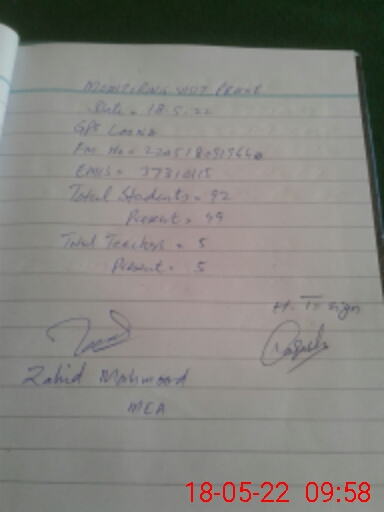 MONITORING VISIT PROOF
Date = 18.5.22
GPS
Fm No = 
EMIS = 37310115
Total Students = 92
Present =
Total Teachers = 5
Present = 5
H. T. sign
Zahid Mahmood
MEA
18-05-22 09:58